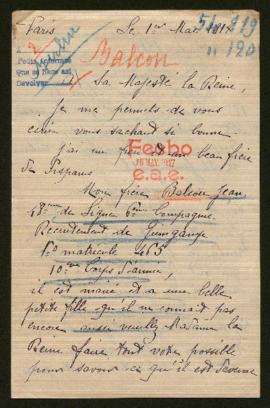 Paris Le 1er Mai 1917
Balcou
Sa Majesté la Reine,
je me permets de vous
écrire vous sachant si bonne
j'ai un frère et un beau frère
de Disparus
Fecho
16 MAY. 1917
e.a.e.
Mon frère Balcou Jean
48ème de Ligne 6ème Compagnie
Recrutement de Guingamp
No matricule 463
10ème Corps d'armée,
il est marié et a une belle
petite fille qu'il ne connait pas
encore aussi veuillez Madame la
Reine faire tout votre possible
pour savoir ce qu'il est devenu